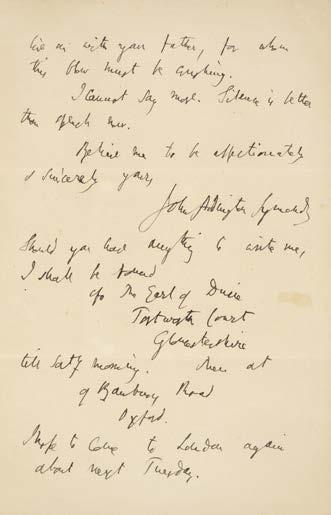 lie on with your father, for whom
this blow must be crushing.
I cannot say more. Silence is better
than speech now.
Believe me to be affectionately
& sincerely yours
John Addington Symonds
Should you have anything to write me,
I shall be found
c/o The Earl of Ducie
Tortworth Court
Gloucestershire
till Saty morning. Then at
9 Banbury Road
Oxford.
I hope to come to London again
about next Tuesday.